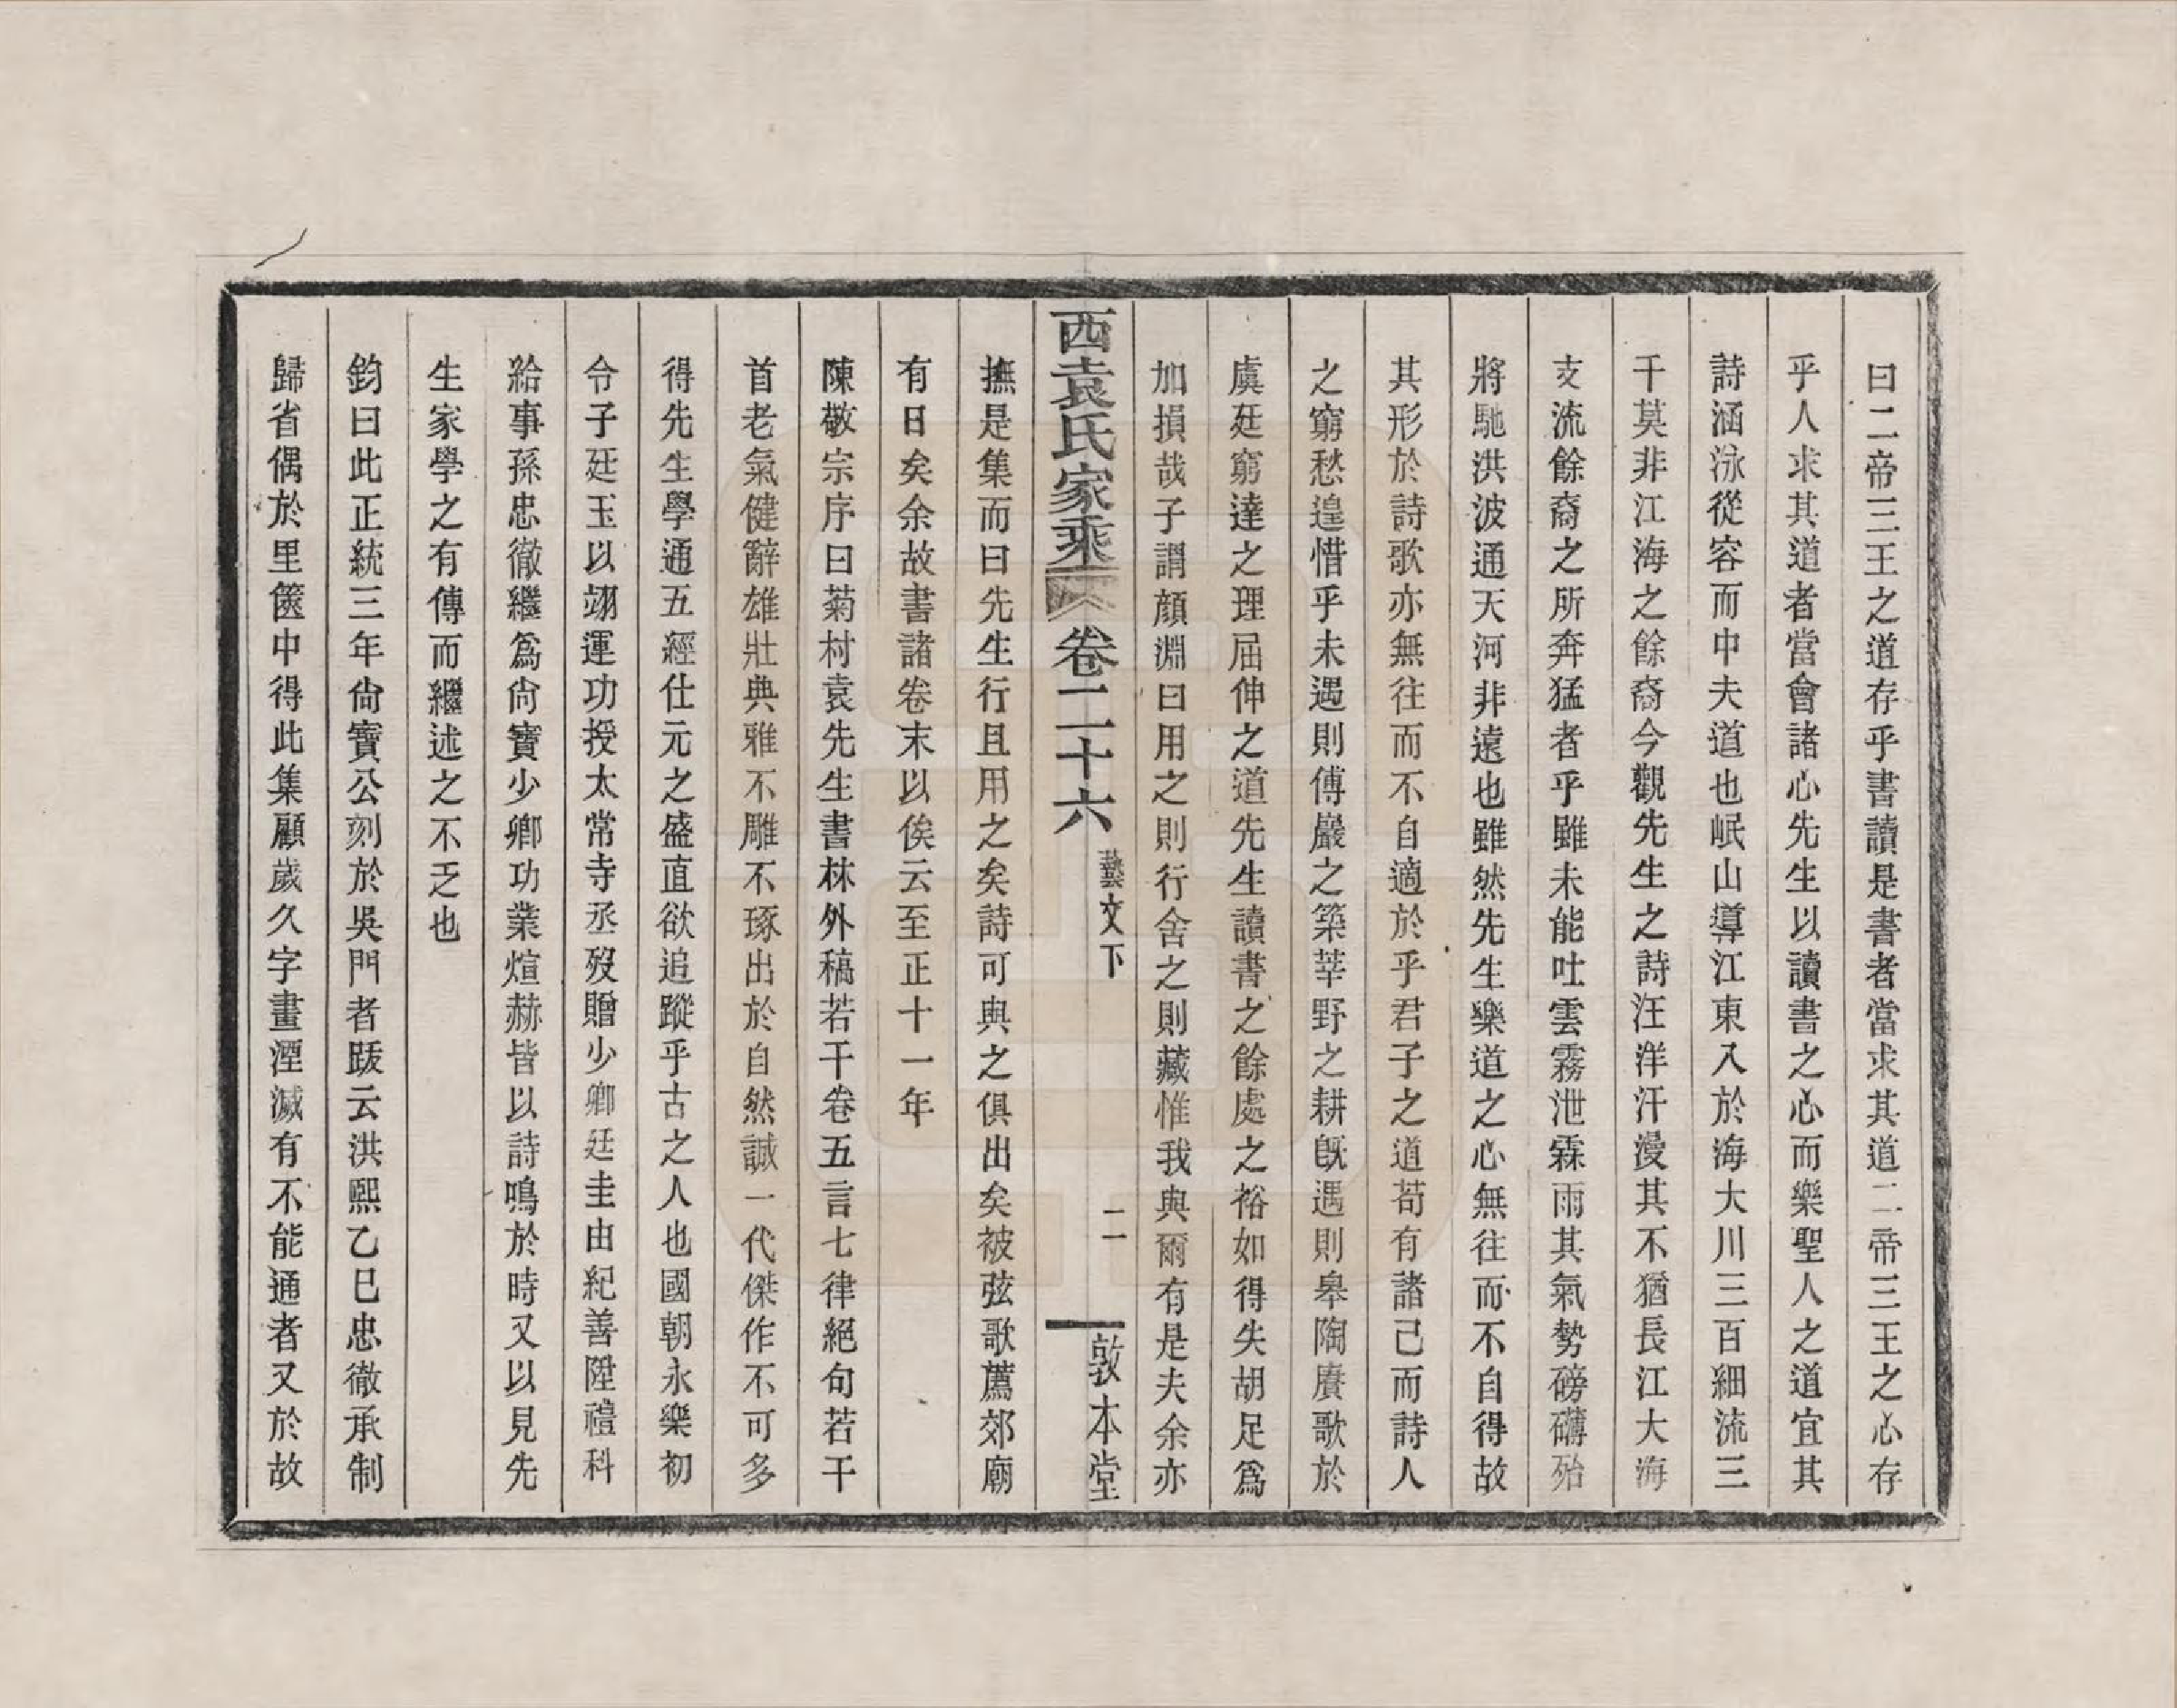 曰二帝三王之道存乎書讀是書者當求其道二帝三王之心存
乎人求其道者當會諸心先生以讀書之心而樂聖人之道宜其
詩涵泳從容而中夫道也岷山導江東入於海大川三百細流三
千莫非江海之餘裔今觀先生之詩汪洋汗漫其不猶長江大海
支流餘裔之所奔猛者乎雖未能吐雲霧泄霖雨其氣勢磅礴殆
將馳洪波通天河非遠也雖然先生樂道之心無往而不自得故
其形於詩歌亦無往而不自適於乎君子之道苟有諸己而詩人
之窮愁遑惜乎未遇則傅巖之築莘野之耕旣遇則皋陶賡歌於
虞廷窮達之理屈伸之道先生讀書之餘處之裕如得失胡足爲
加損哉子謂顏淵曰用之則行舍之則藏惟我與爾有是夫余亦
西袁氏家乘 卷二十六 藝文下 二 敦本堂
撫是集而曰先生行且用之矣詩可與之俱出矣被弦歌薦郊廟
有日矣余故書諸卷末以俟云至正十一年
陳敬宗序曰菊村袁先生書林外稿若干卷五言七律絕句若干
首老氣健辭雄壯典雅不雕不琢出於自然誠一代傑作不可多
得先生學通五經仕元之盛直欲追蹤乎古之人也國朝永樂初
令子廷玉以翊運功授太常寺丞歿贈少卿廷圭由紀善陞禮科
給事孫忠徹繼爲尙寶少卿功業煊赫皆以詩鳴於時又以見先
生家學之有傳而繼述之不乏也
鈞曰此正統三年尙寶公刻於吳門者跋云洪熙乙巳忠徹承制
歸省偶於里篋中得此集顧歲久字畫湮滅有不能通者又於故